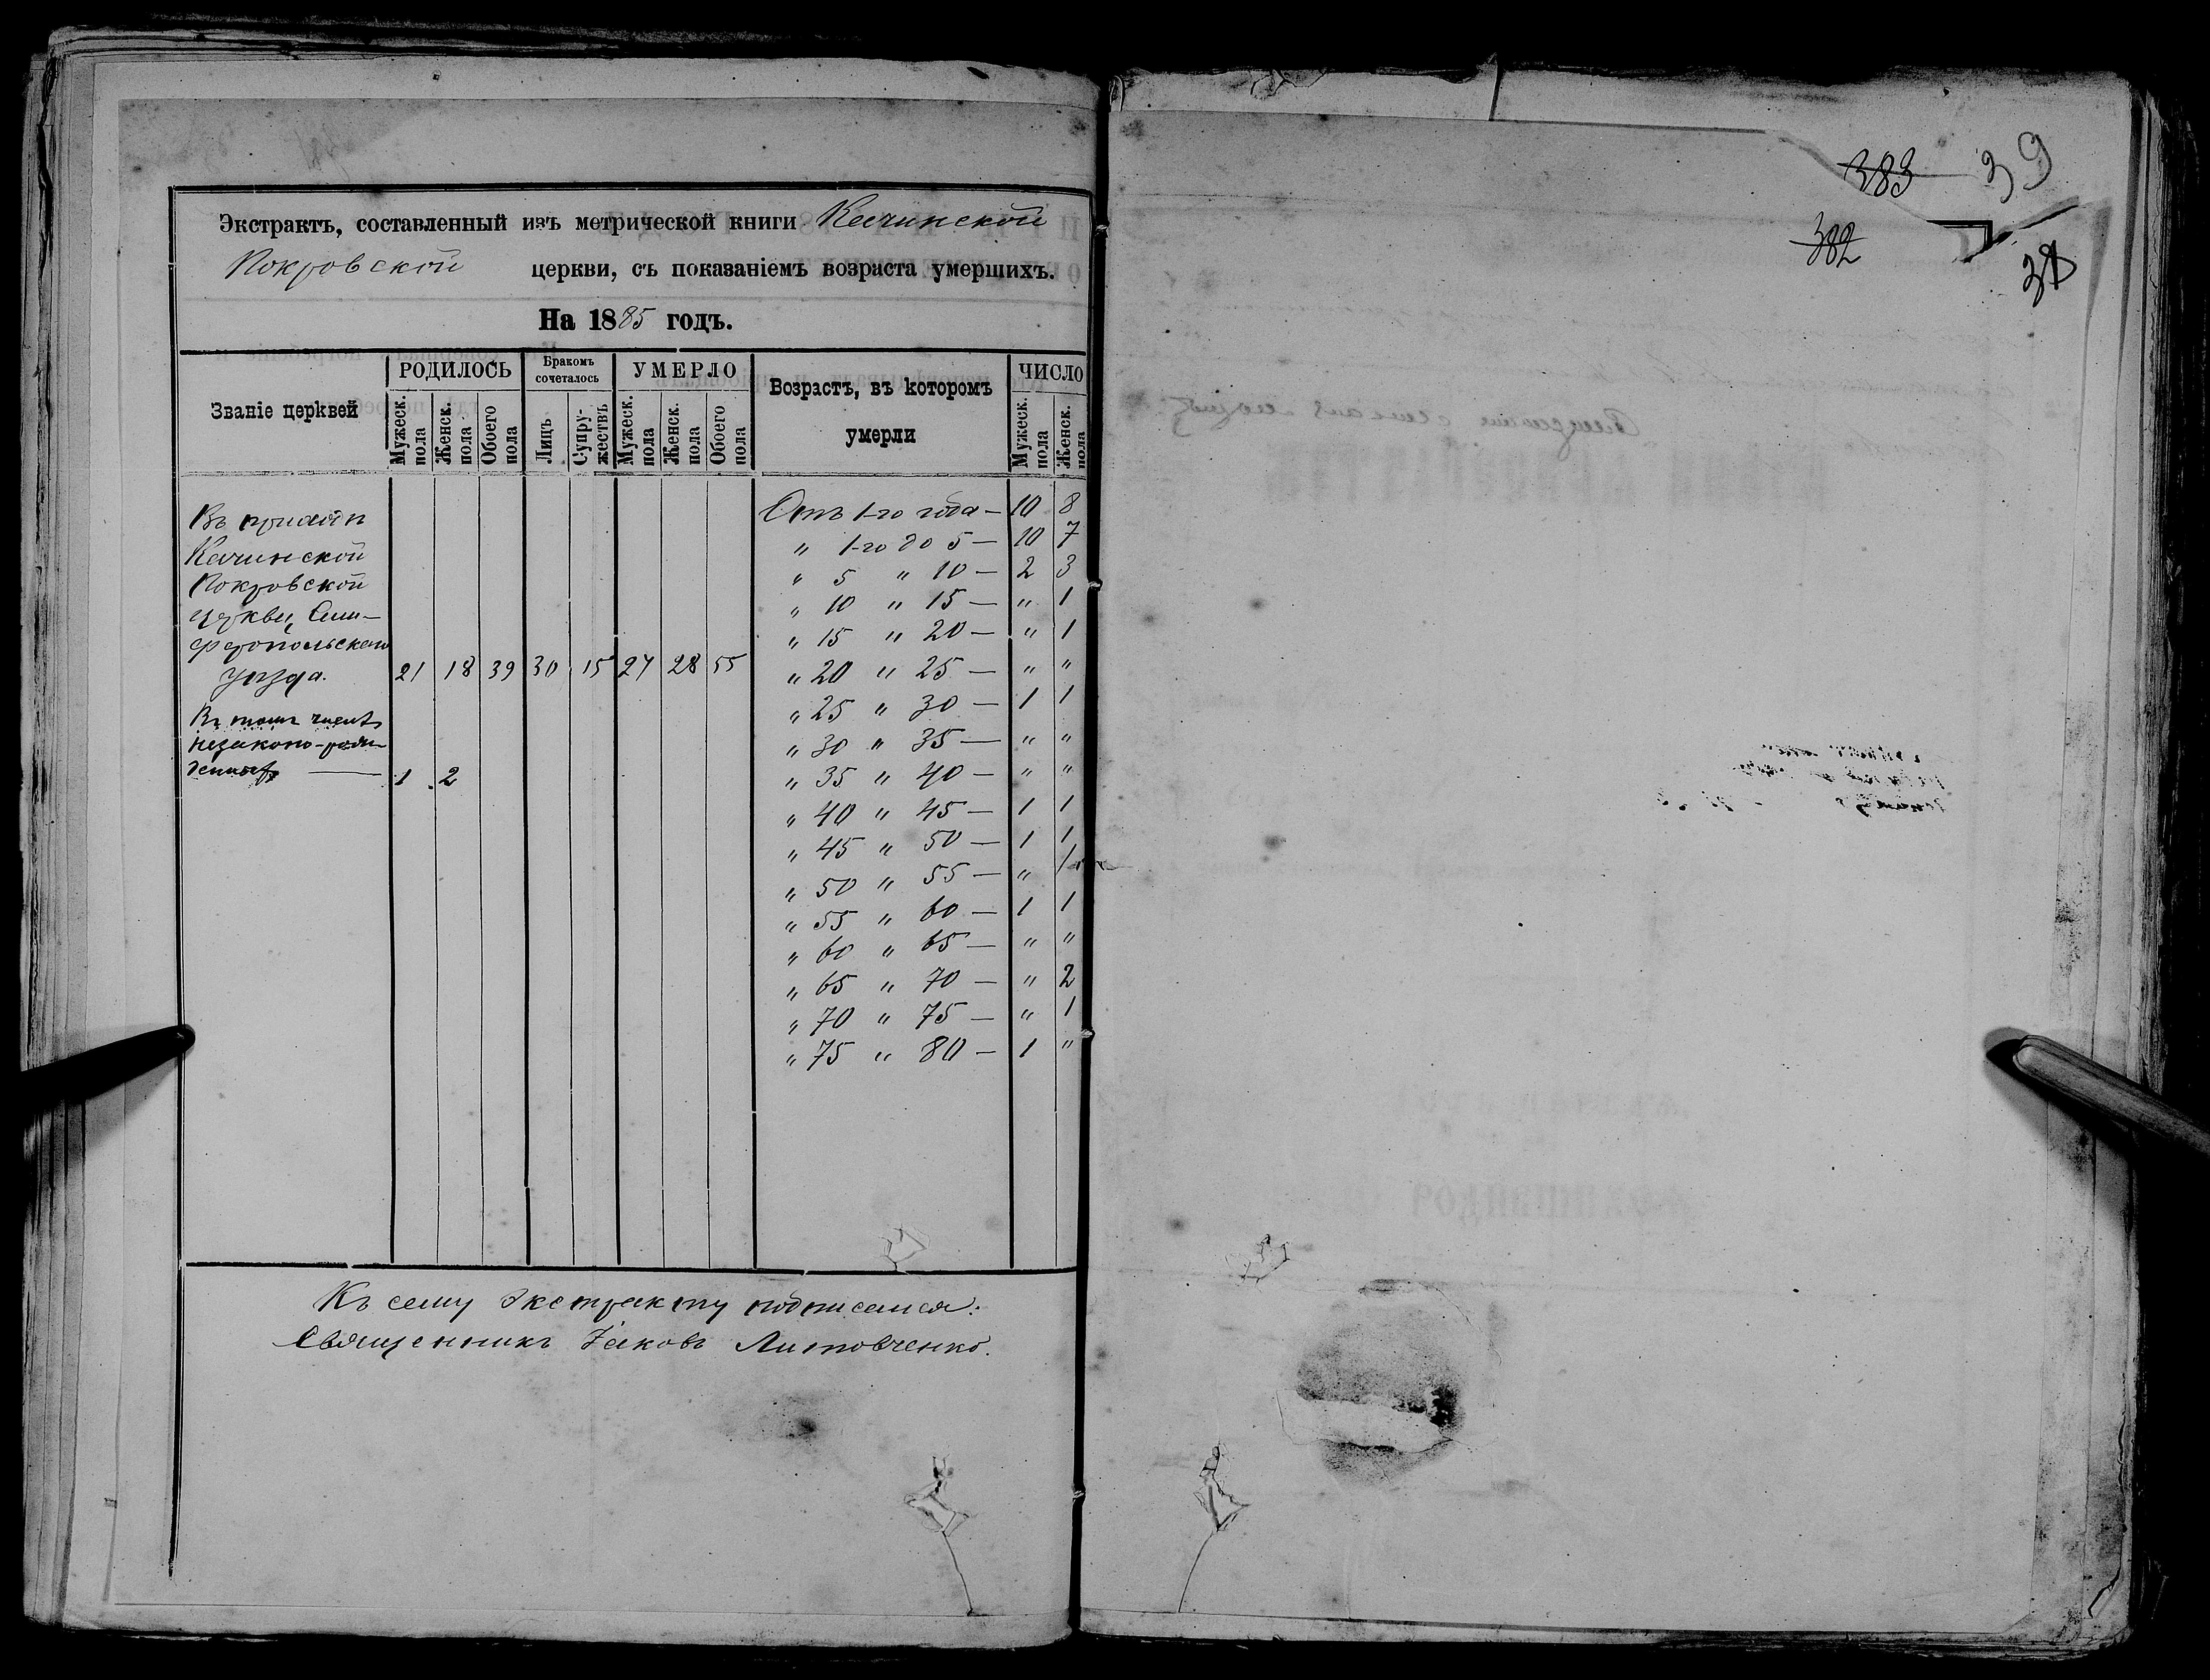 Экстрактъ, составленный изъ метрической книги Качинской
Покровской церкви, съ показаніемъ возраста умершихъ.
На 1885 годъ.
Званіе церквей
РОДИЛОСЬ
Мужеск. пола
Женск. пола
Обоего пола
Бракомъ сочеталось
Лицъ
Супру-жествъ
УМЕРЛО
Мужеск. пола
Женск. пола
Обоего пола
Возрастъ, въ которомъ умерли
ЧИСЛО
Мужеск. пола
Женск. пола
Въ приходѣ
Качинской
Покровской
церкви, Сим-
феропольскаго
уѣзда. 21 18 39 30 15 27 28 55
Въ томъ числѣ
незаконо-рож-
денныхъ — 1 2
Отъ 1-го года — 10 8
„ 1-го до 5 — 10 7
„ 5 „ 10 — 2 3
„ 10 „ 15 — „ 1
„ 15 „ 20 — „ 1
„ 20 „ 25 — „ „
„ 25 „ 30 — 1 1
„ 30 „ 35 — „ „
„ 35 „ 40 — „ „
„ 40 „ 45 — 1 1
„ 45 „ 50 — 1 1
„ 50 „ 55 — „ 1
„ 55 „ 60 — 1 1
„ 60 „ 65 — „ „
„ 65 „ 70 — „ 2
„ 70 „ 75 — „ 1
„ 75 „ 80 — 1 „
Къ сему экстракту подписался:
Священникъ Іаковъ Литовченко.
383 39
382
38